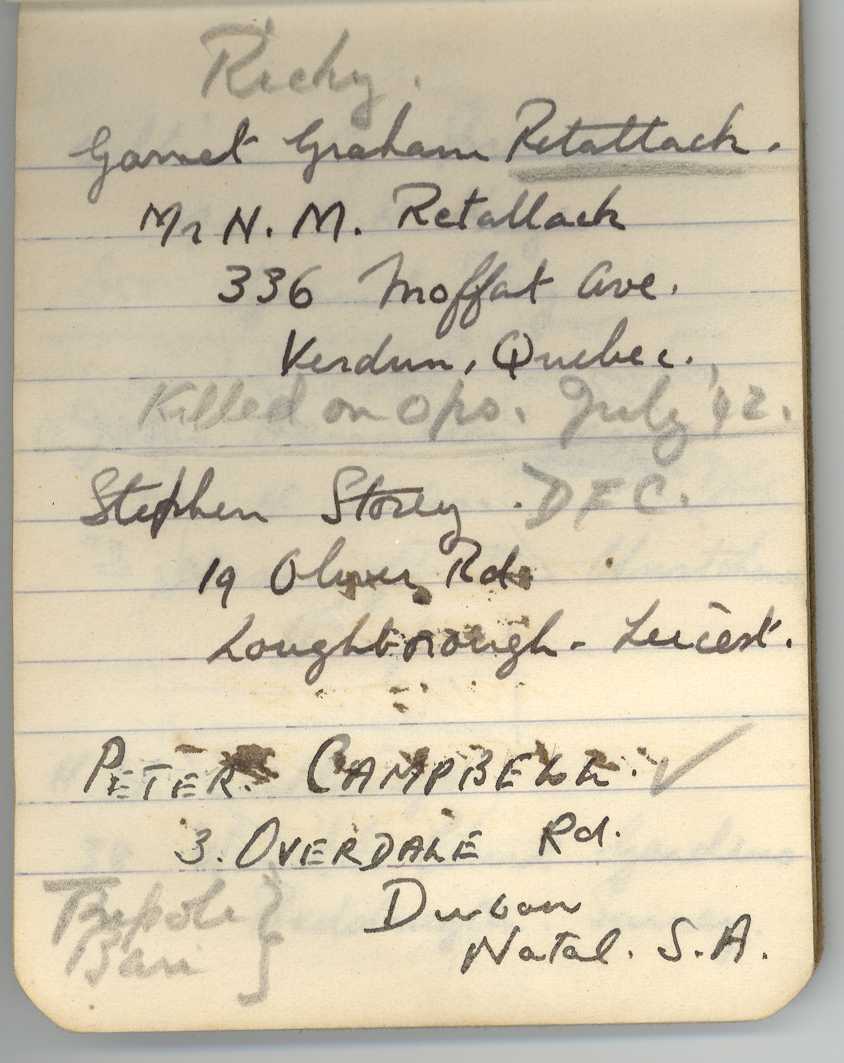 Ricky.
Garnet Graham Retallack.
Mr N. M. Retallack
336 Moffat Ave.
Verdun, Quebec.
Killed on ops. July '42.
Stephen Storey. DFC.
19 Oliver Rd.
Loughborough - Leicest.
PETER CAMPBELL. ✓
3. OVERDALE Rd.
Durban
Natal. S.A.
Tripoli }
Bari }